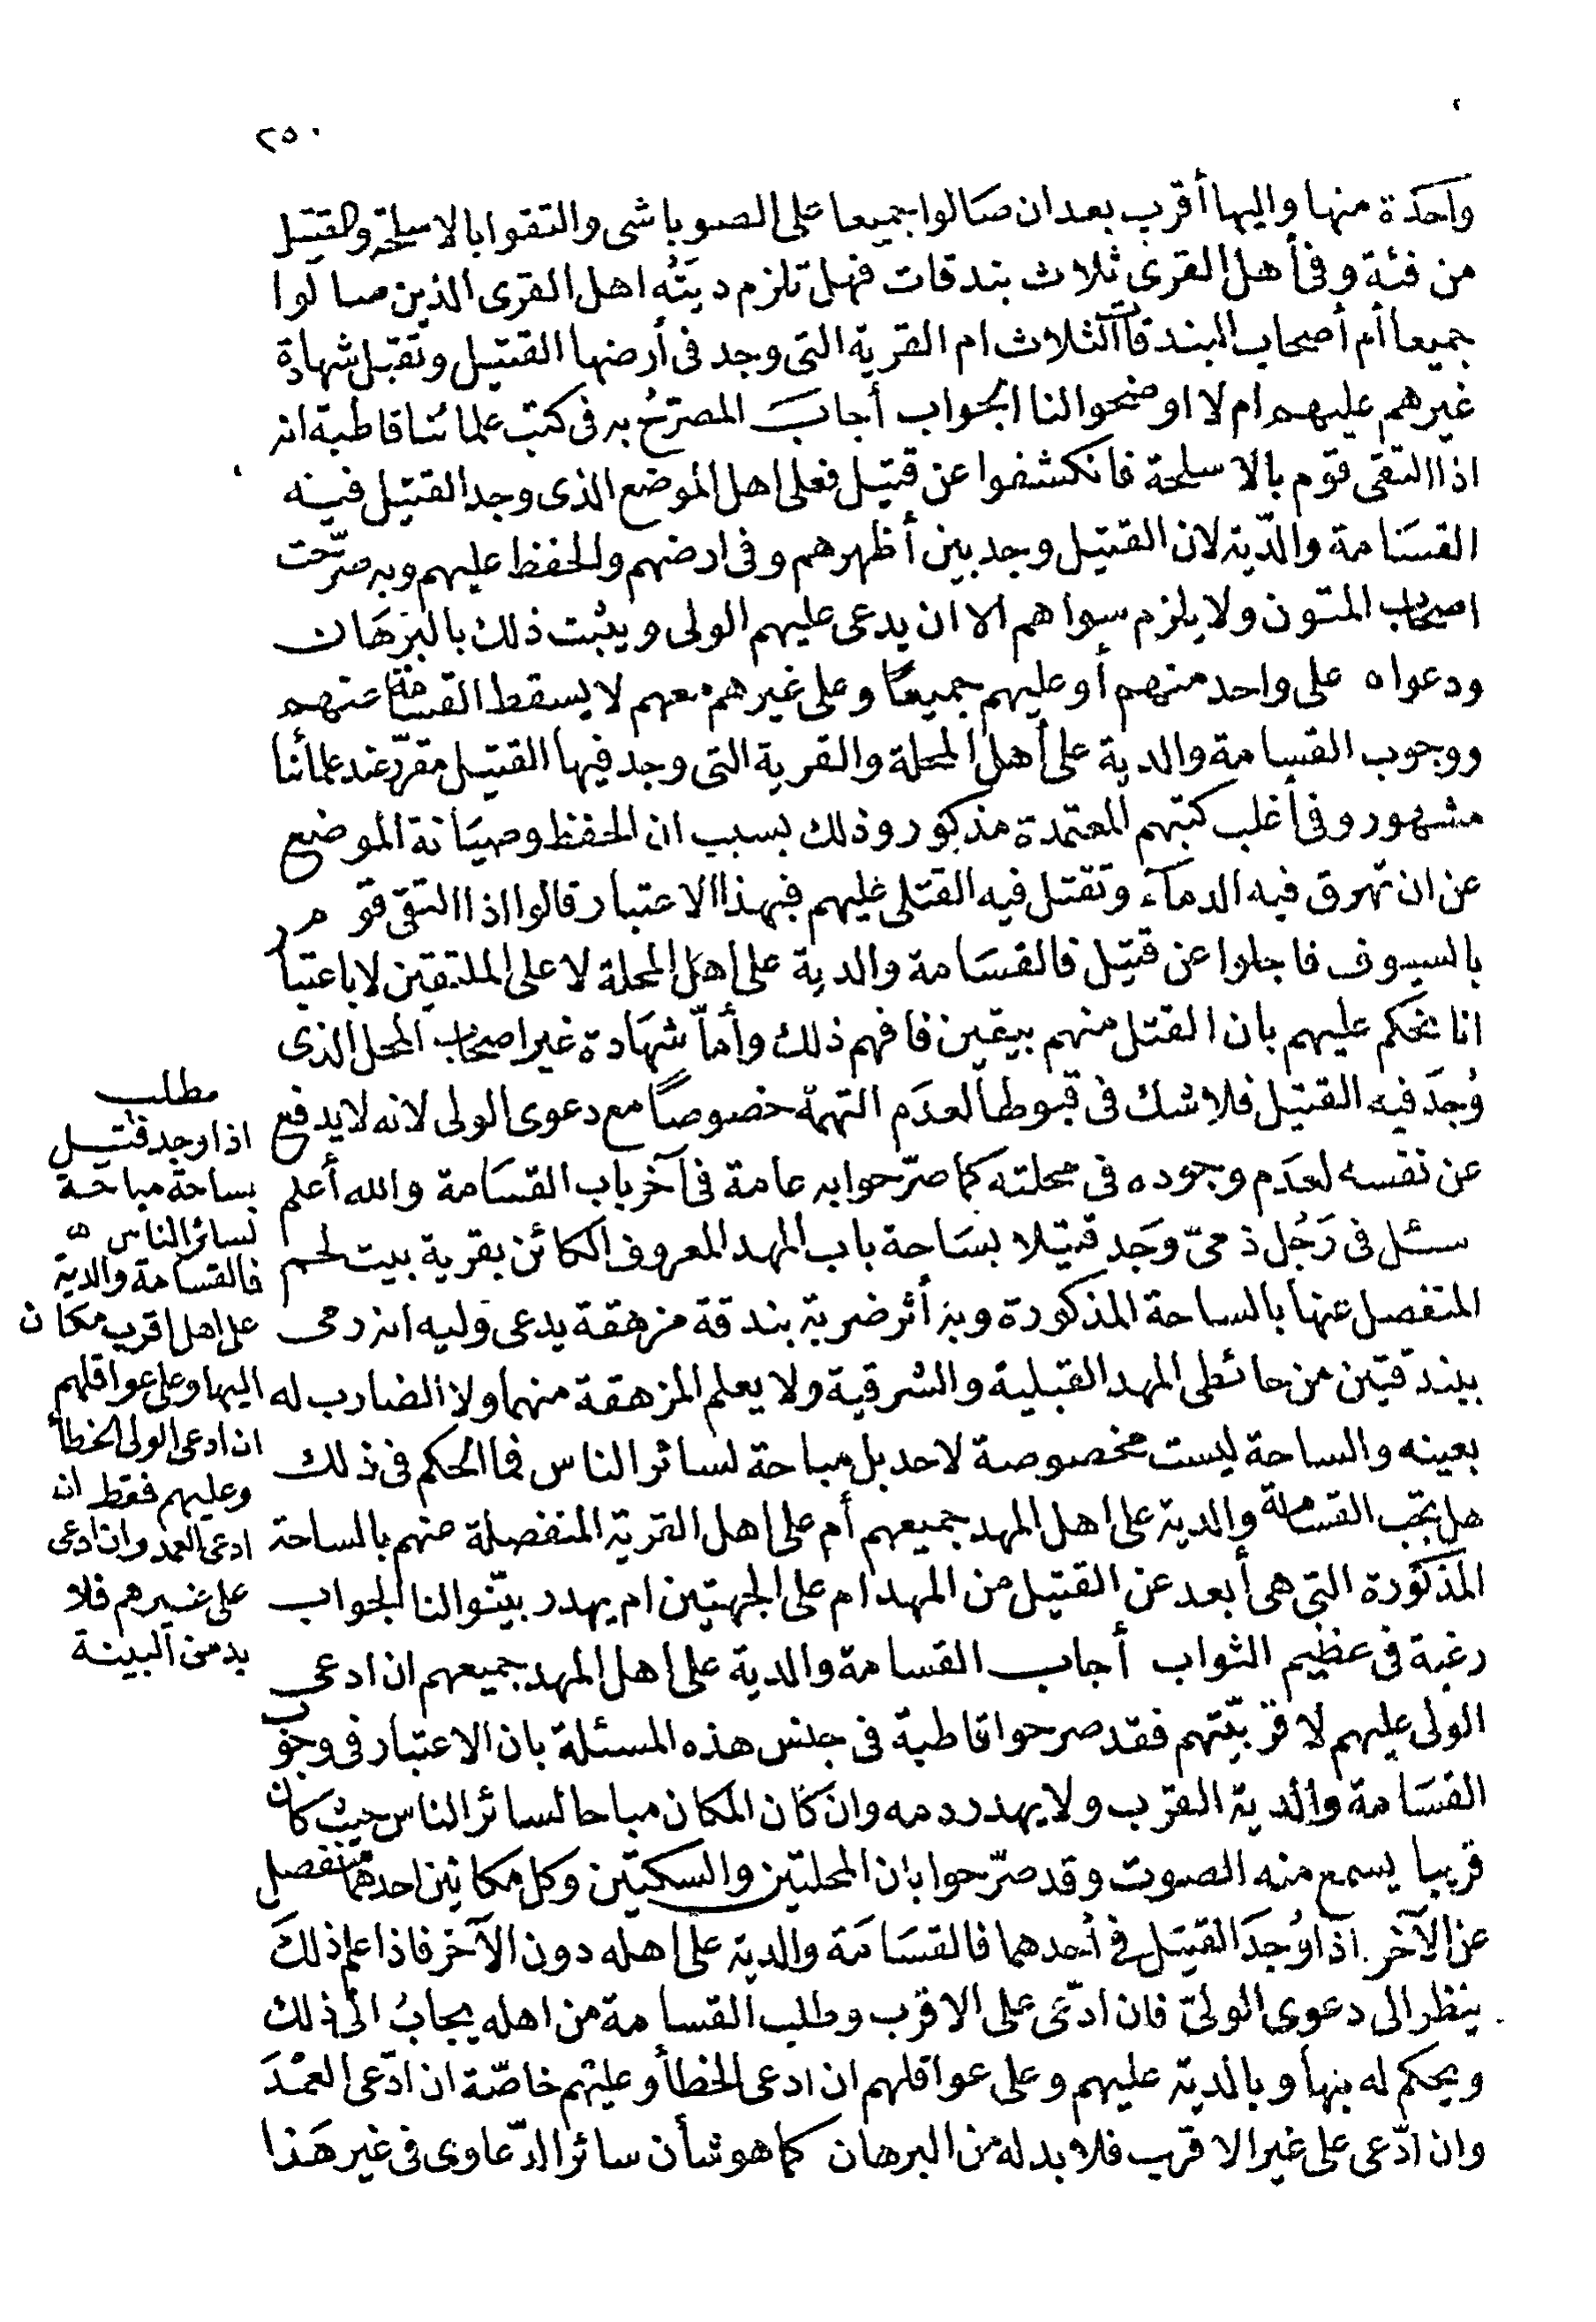 ٢٥٠
واحدة منها واليها أقرب بعد ان صالوا جميعا على الصوباشى والتقوا بالاسلحة والقتيل
من فئة وفى أهل القرى ثلاث بندقات فهل تلزم ديته اهل القرى الذين صالوا
جميعا أم أصحاب البندقات الثلاث ام القرية التى وجد فى أرضها القتيل وتقبل شهادة
غيرهم عليهم ام لا اوضحوا لنا الجواب أجاب المصرح به فى كتب علمائنا قاطبة انه
اذا التقى قوم بالاسلحة فانكشفوا عن قتيل فعلى اهل الموضع الذى وجد القتيل فيه
القسامة والدية لان القتيل وجد بين أظهرهم وفى ارضهم والحفظ عليهم وبه صرّحت
اصحاب المتون ولا يلزم سواهم الا ان يدعى عليهم الولى ويثبت ذلك بالبرهان
ودعواه على واحد منهم أو عليهم جميعا وعلى غيرهم معهم لا يسقط القسامة عنهم
ووجوب القسامة والدية على أهل المحلة والقرية التى وجد فيها القتيل مقرّر عند علمائنا
مشهور وفى أغلب كتبهم المعتمدة مذكور وذلك بسبب ان الحفظ وصيانة الموضع
عن ان تهرق فيه الدماء وتقتل فيه القتلى عليهم فبهذا الاعتبار قالوا اذا التقى قوم
بالسيوف فاجلوا عن قتيل فالقسامة والدية على اهل المحلة لا على الملتقين لا باعتبار
انا نحكم عليهم بان القتل منهم بيقين فافهم ذلك وأمّا شهادة غير اصحاب المحل الذى
وُجد فيه القتيل فلا شك فى قبولها لعدم التهمة خصوصاً مع دعوى الولى لانه لا يدفع
عن نفسه لعدم وجوده فى محلته كما صرّحوا به عامة فى آخر باب القسامة والله أعلم
سئل فى رَجُل ذمىّ وَجد قتيلا بساحة باب المهد المعروف الكائن بقرية بيت لحم
المنفصل عنها بالساحة المذكورة وبه أثر ضربة بندقة مزهقة يدعى وليه انه رمى
ببندقتين من حائطى المهد القبلية والشرقية ولا يعلم المزهقة منهما ولا الضارب له
بعينه والساحة ليست مخصوصة لاحد بل مباحة لسائر الناس فما الحكم فى ذلك
هل تجب القسامة والدية على اهل المهد جميعهم أم على اهل القرية المنفصلة عنهم بالساحة
المذكورة التى هى أبعد عن القتيل من المهد ام على الجهتين ام يهدر بيّنوا لنا الجواب
رغبة فى عظيم الثواب أجاب القسامة والدية على اهل المهد جميعهم ان ادعى
الولى عليهم لا قربيّتهم فقد صرحوا قاطبة فى جنس هذه المسئلة بان الاعتبار فى وجوب
القسامة والدية القرب ولا يهدر دمه وان كان المكان مباحا لسائر الناس حيث كان
قريبا يسمع منه الصوت وقد صرّحوا بان المحلتين والسكتين وكل مكانين احدهما منفصل
عن الآخر اذا وُجد القتيل فى أحدهما فالقسامة والدية على اهله دون الآخر فاذا علم ذلك
ينظر الى دعوى الولىّ فان ادّعى على الاقرب وطلب القسامة من اهله يجابُ الى ذلك
ويحكم له بها وبالدية عليهم وعلى عواقلهم ان ادعى الخطأ وعليهم خاصّة ان ادّعى العمْد
وان ادّعى على غير الاقرب فلا بد له من البرهان كما هو شأن سائر الدّعاوى فى غير هذا
مطلب
اذا وجد قتيل
بساحة مباحة
لسائر الناس
فالقسامة والدية
على اهل اقرب مكان
اليها وعلى عواقلهم
ان ادعى الولى الخطأ
وعليهم فقط ان
ادعى العمد وان ادعى
على غيرهم فلا
بد من البينة